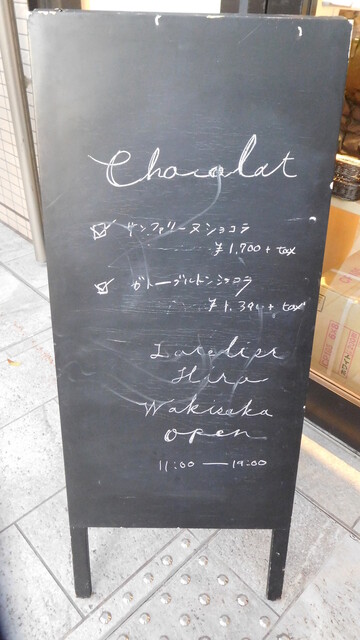 Chocolat
サンファリーヌショコラ
¥1,700 + tax
ガトーブルトンショコラ
¥1,390 + tax
Latelier
Hiro
Wakisaka
open
11:00 — 19:00
ホワイト